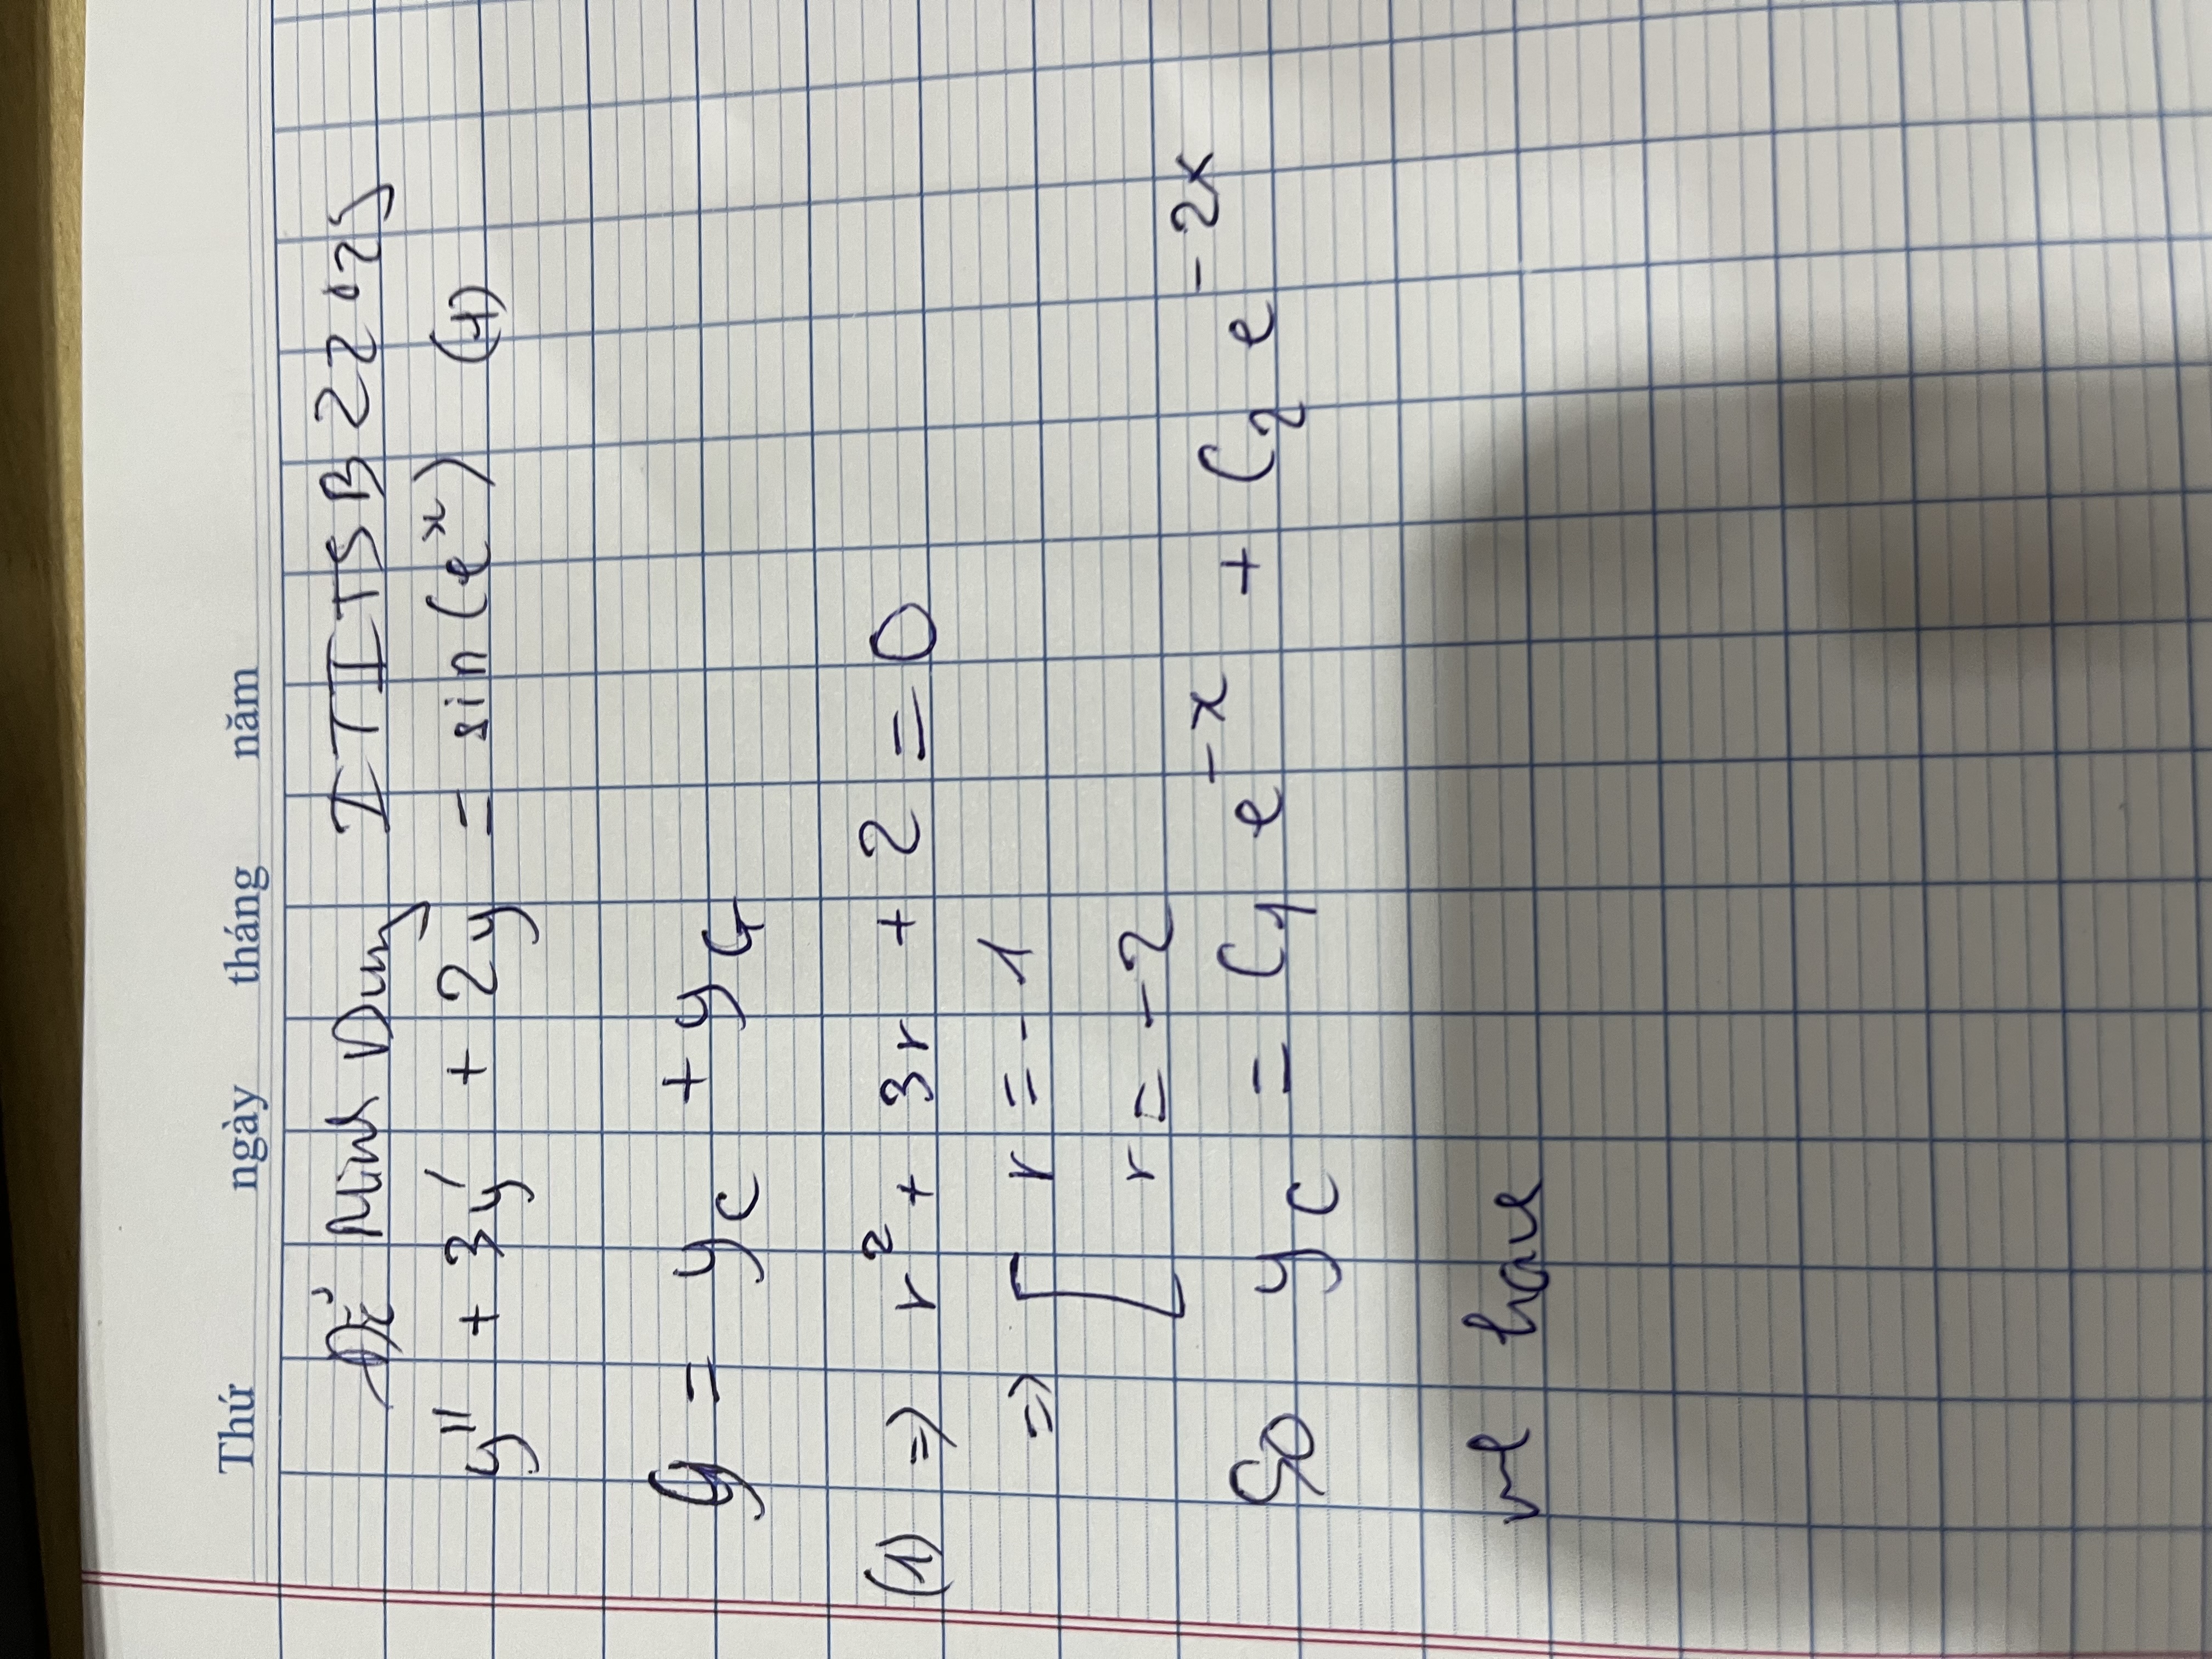 Thứ ngày tháng năm
Minh Duy ITITSB22029
y'' + 3y' + 2y = sin(e^x) (1)
y = y_c + y_G
(1) => r^2 + 3r + 2 = 0
=> [ r = -1
r = -2
So y_c = C_1 e^{-x} + C_2 e^{-2x}
we have